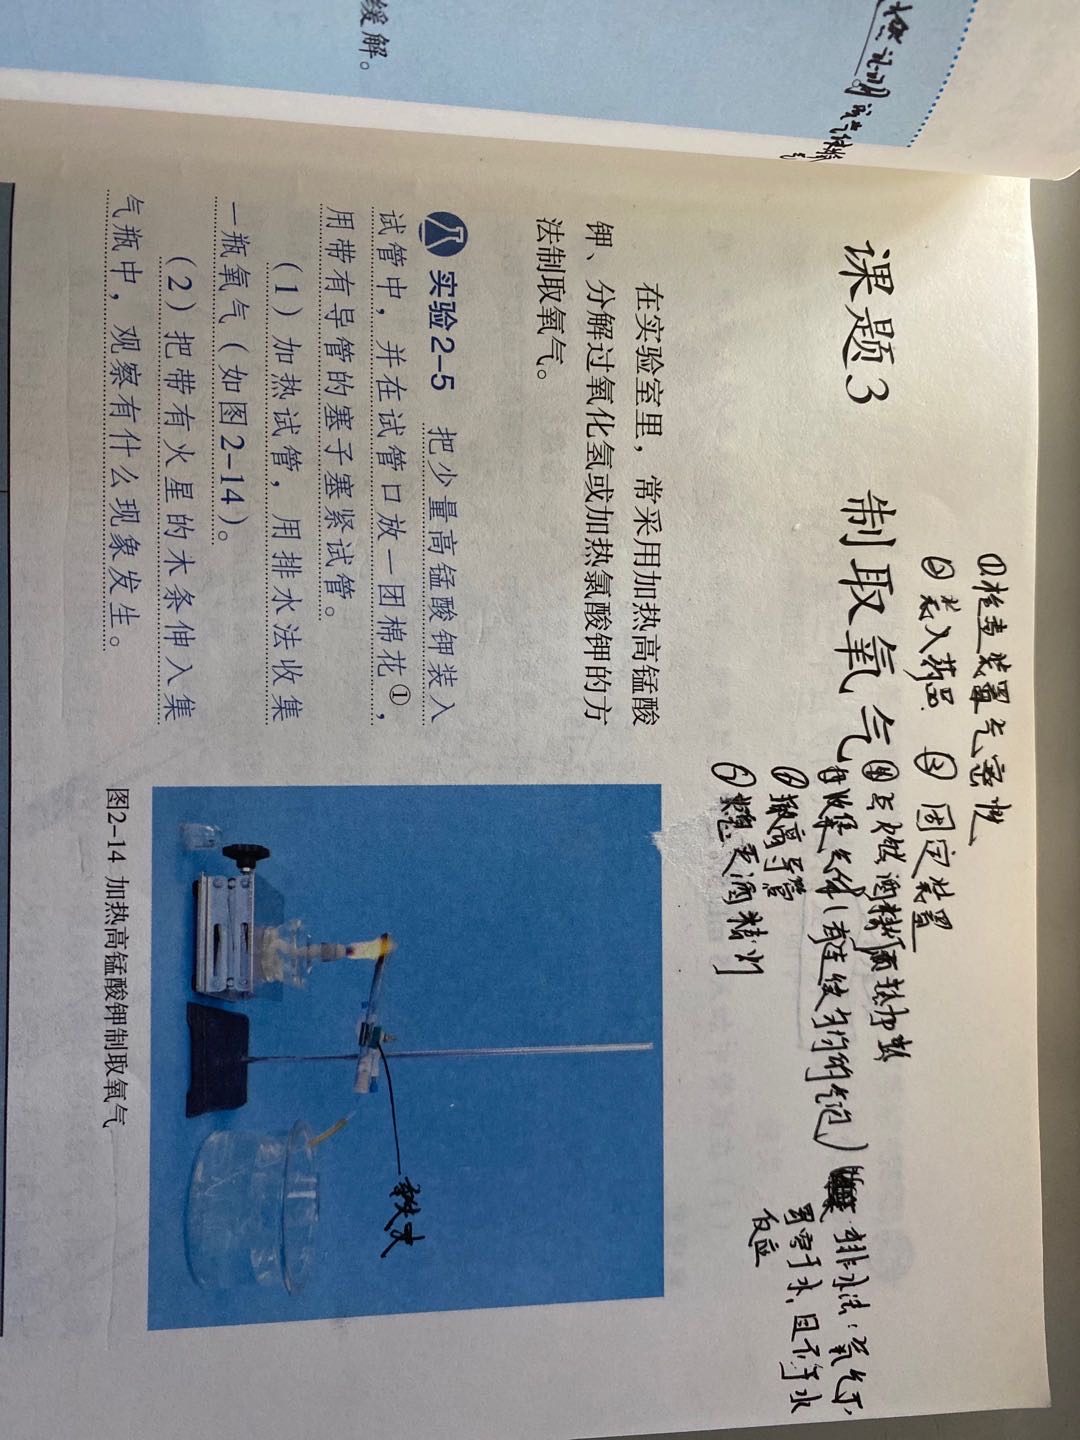 缓解。
①检查装置气密性
②装入药品 ③固定装置
课题3 制取氧气
④点燃酒精灯预热加热
⑤收集气体(有连续均匀的气泡)
⑥撤离导管
⑦熄灭酒精灯
排水法:氧气不
易溶于水,且不与水
反应
在实验室里,常采用加热高锰酸
钾、分解过氧化氢或加热氯酸钾的方
法制取氧气。
实验2-5 把少量高锰酸钾装入
试管中,并在试管口放一团棉花①,
用带有导管的塞子塞紧试管。
(1)加热试管,用排水法收集
一瓶氧气(如图2-14)。
(2)把带有火星的木条伸入集
气瓶中,观察有什么现象发生。
铁夹
图2-14 加热高锰酸钾制取氧气